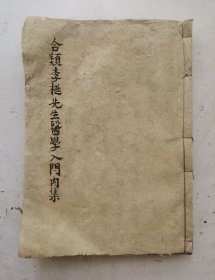 合類李梴先生醫學入門内集